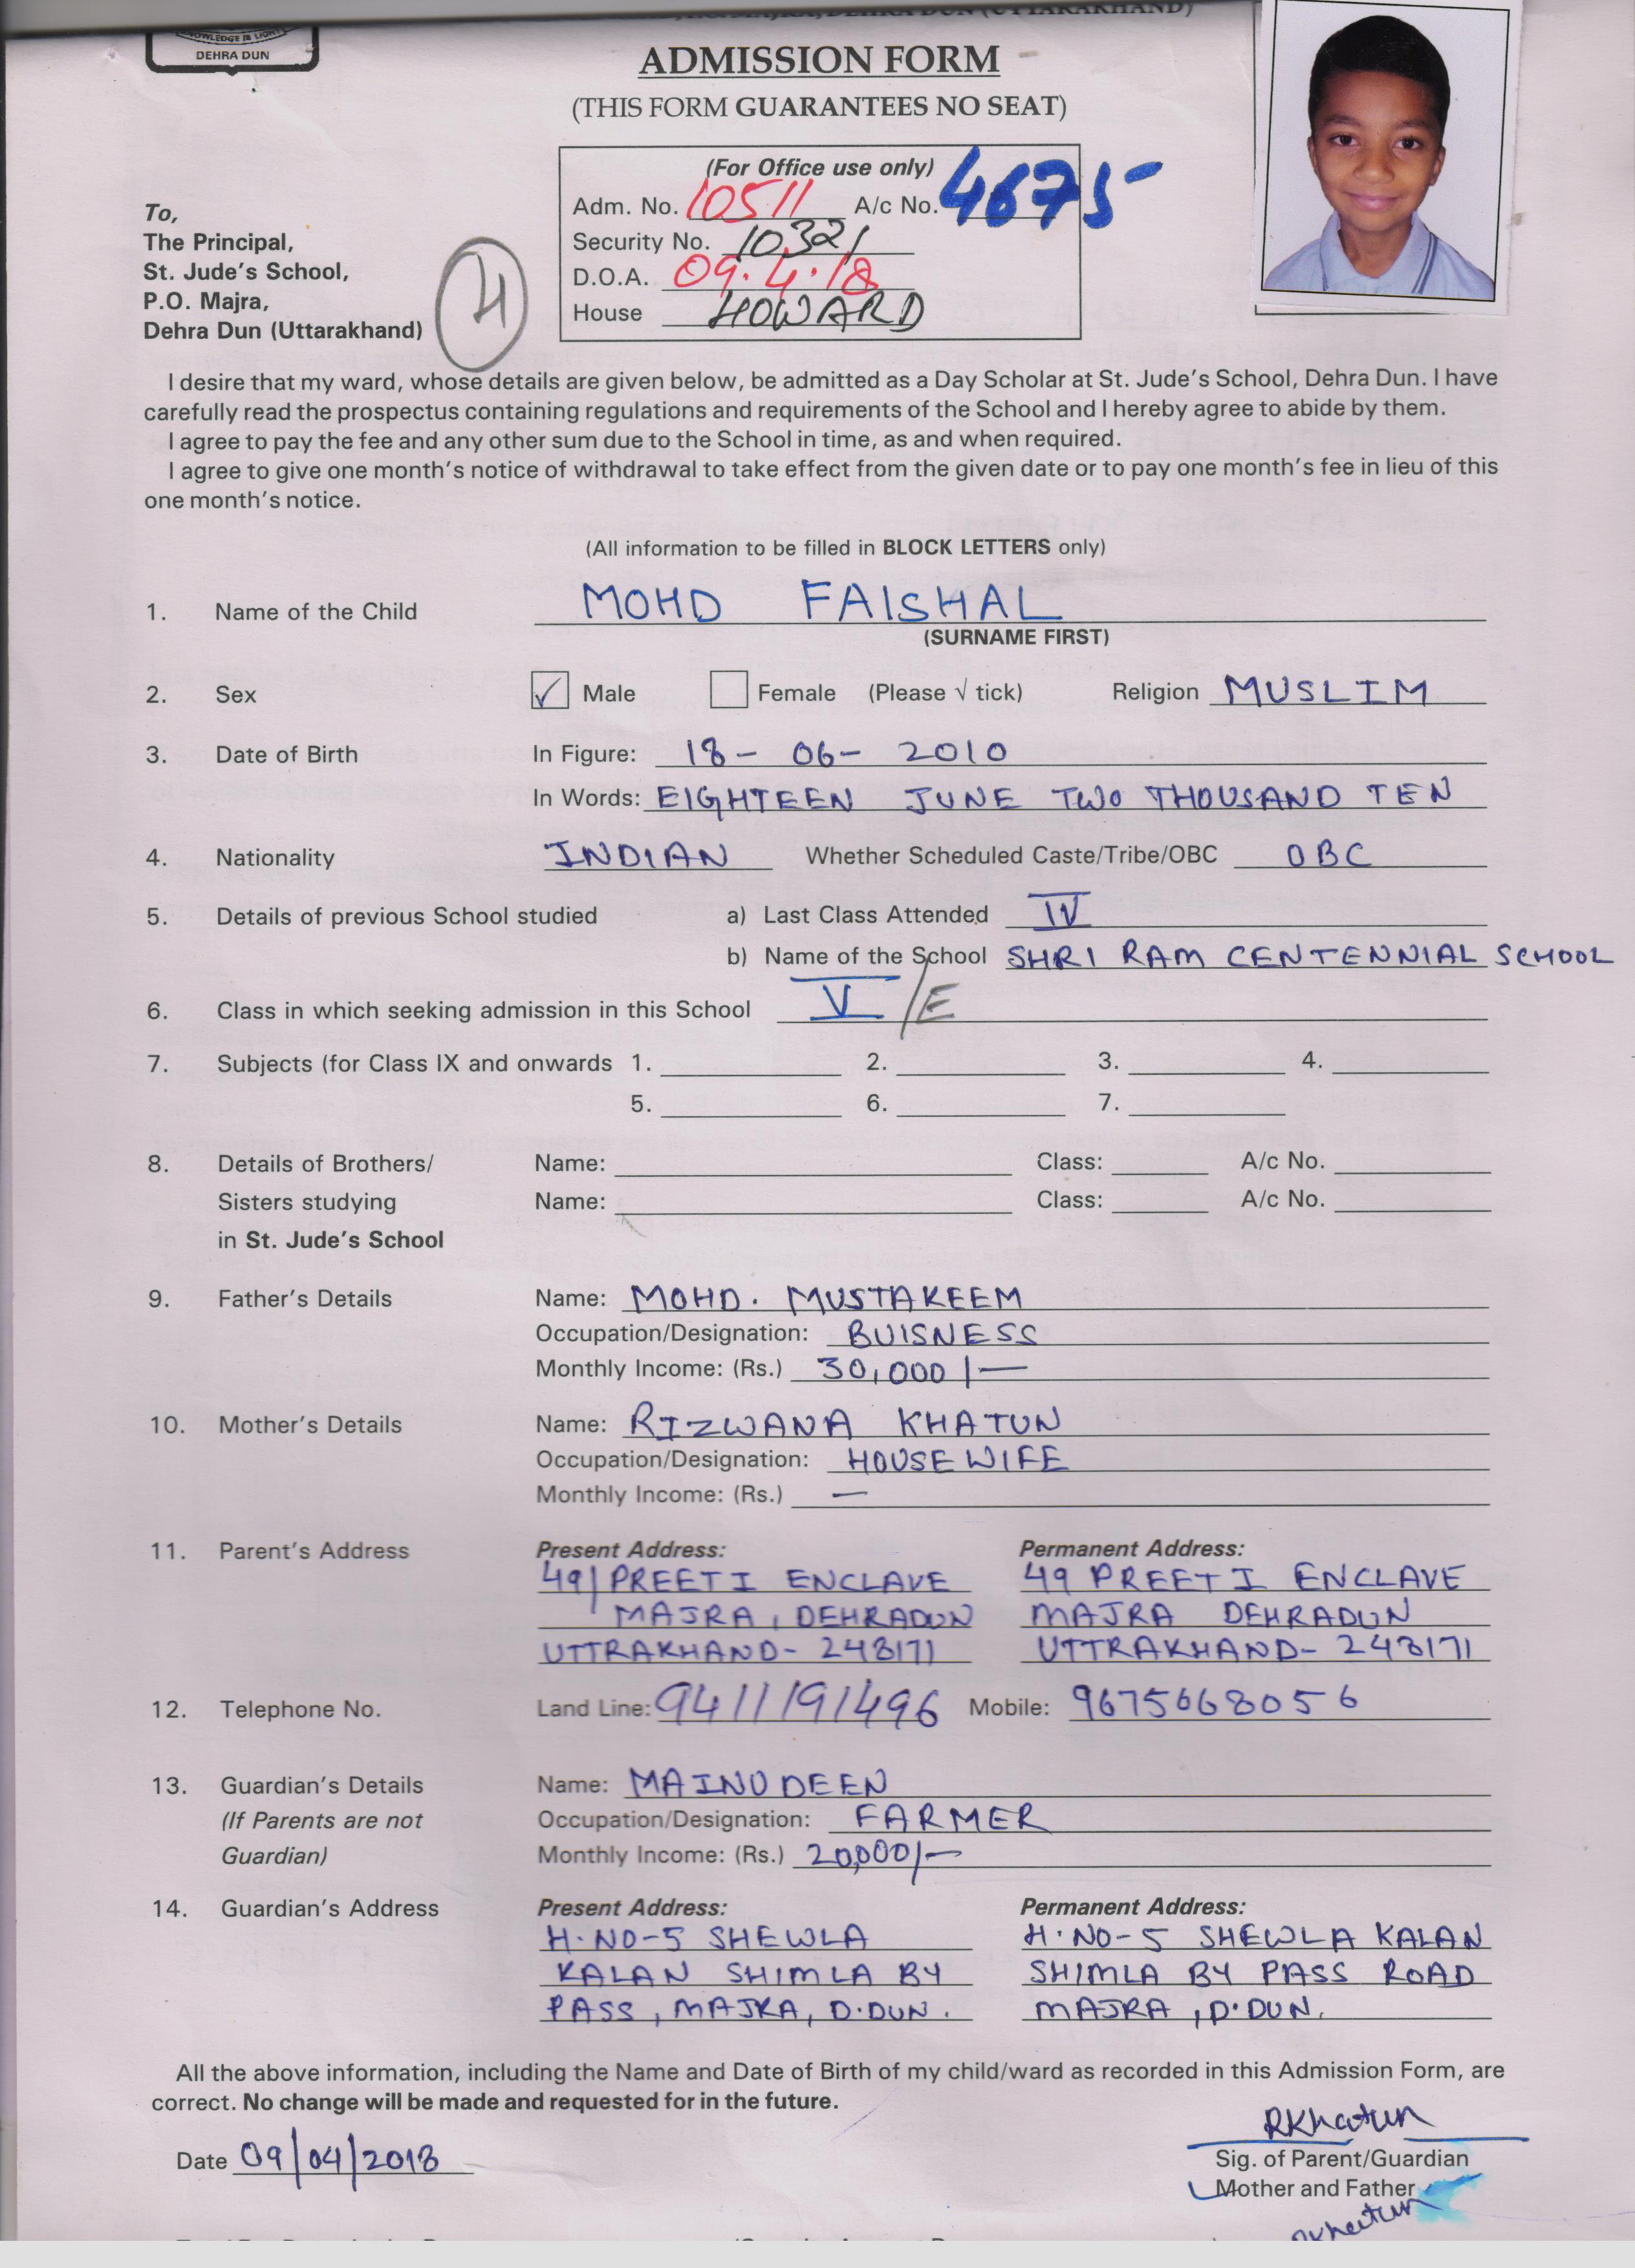 KNOWLEDGE IS LIGHT
DEHRA DUN
DEHRA DUN (UTTARAKHAND)
ADMISSION FORM
(THIS FORM GUARANTEES NO SEAT)
(For Office use only)
Adm. No. 10511 A/c No. 4675
Security No. 10321
D.O.A. 09.4.18
House HOWARD
To,
The Principal,
St. Jude's School,
P.O. Majra,
Dehra Dun (Uttarakhand)
I desire that my ward, whose details are given below, be admitted as a Day Scholar at St. Jude's School, Dehra Dun. I have
carefully read the prospectus containing regulations and requirements of the School and I hereby agree to abide by them.
I agree to pay the fee and any other sum due to the School in time, as and when required.
I agree to give one month's notice of withdrawal to take effect from the given date or to pay one month's fee in lieu of this
one month's notice.
(All information to be filled in BLOCK LETTERS only)
1. Name of the Child MOHD FAISHAL
(SURNAME FIRST)
2. Sex ✓ Male Female (Please √ tick) Religion MUSLIM
3. Date of Birth In Figure: 18- 06- 2010
In Words: EIGHTEEN JUNE TWO THOUSAND TEN
4. Nationality INDIAN Whether Scheduled Caste/Tribe/OBC OBC
5. Details of previous School studied a) Last Class Attended IV
b) Name of the School SHRI RAM CENTENNIAL SCHOOL
6. Class in which seeking admission in this School V/E
7. Subjects (for Class IX and onwards 1. 2. 3. 4.
5. 6. 7.
8. Details of Brothers/ Name: Class: A/c No.
Sisters studying Name: Class: A/c No.
in St. Jude's School
9. Father's Details Name: MOHD. MUSTAKEEM
Occupation/Designation: BUISNESS
Monthly Income: (Rs.) 30,000/-
10. Mother's Details Name: RIZWANA KHATUN
Occupation/Designation: HOUSE WIFE
Monthly Income: (Rs.) —
11. Parent's Address Present Address: Permanent Address:
49/PREETI ENCLAVE 49 PREETI ENCLAVE
MAJRA, DEHRADUN MAJRA DEHRADUN
UTTRAKHAND- 248171 UTTRAKHAND- 248171
12. Telephone No. Land Line: 9411191496 Mobile: 9675668056
13. Guardian's Details Name: MAINUDEEN
(If Parents are not Occupation/Designation: FARMER
Guardian) Monthly Income: (Rs.) 20,000/-
14. Guardian's Address Present Address: Permanent Address:
H.NO-5 SHEWLA H.NO-5 SHEWLA KALAN
KALAN SHIMLA BY SHIMLA BY PASS ROAD
PASS, MAJRA, D.DUN. MAJRA, D.DUN.
All the above information, including the Name and Date of Birth of my child/ward as recorded in this Admission Form, are
correct. No change will be made and requested for in the future.
RKhatun
Date 09/04/2018
Sig. of Parent/Guardian
Mother and Father
RKhatun